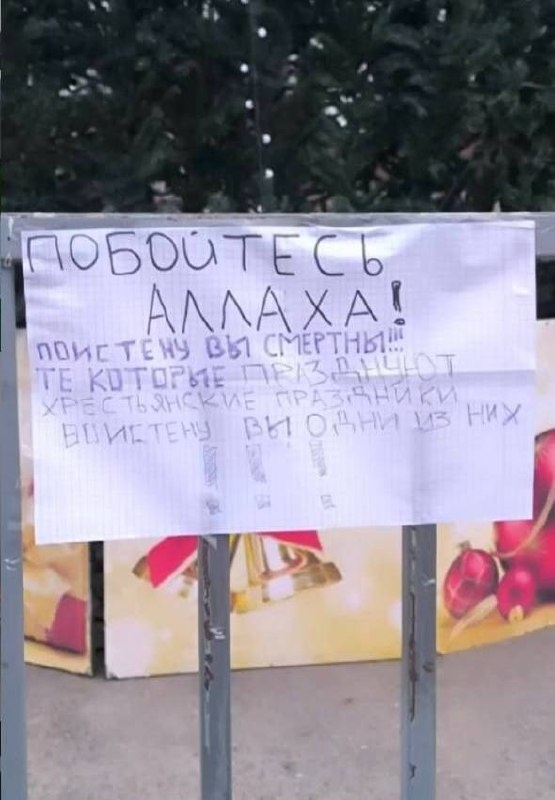 ПОБОЙТЕСЬ
АЛЛАХА!
ПОИСТЕНУ ВЫ СМЕРТНЫ!!!
ТЕ КОТОРЫЕ ПРАЗДНУЮТ
ХРЕСТЬЯНСКИЕ ПРАЗДНИКИ
ВОИСТЕНУ ВЫ ОДНИ ИЗ НИХ
! ! !